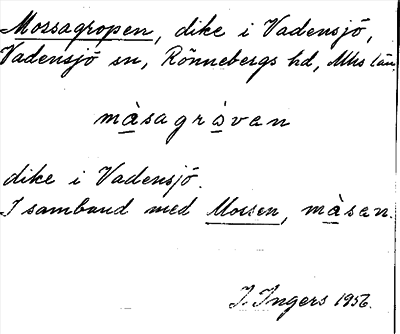 Mossagropen, dike i Vadensjö,
Vadensjö sn, Rönnebergs hd, Mhs län.
måsagråvan
dike i Vadensjö.
I samband med Mossen, måsan.
I. Ingers 1956.